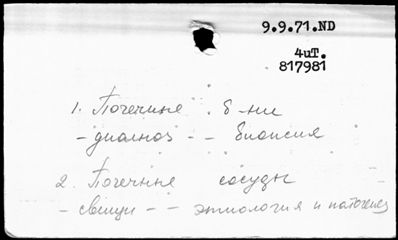 9.9.71.ND
4иT.
817981
1. Почечные б-ни
- диагноз - - биопсия
2. Почечные сосуды
- - - этиология и патогенез